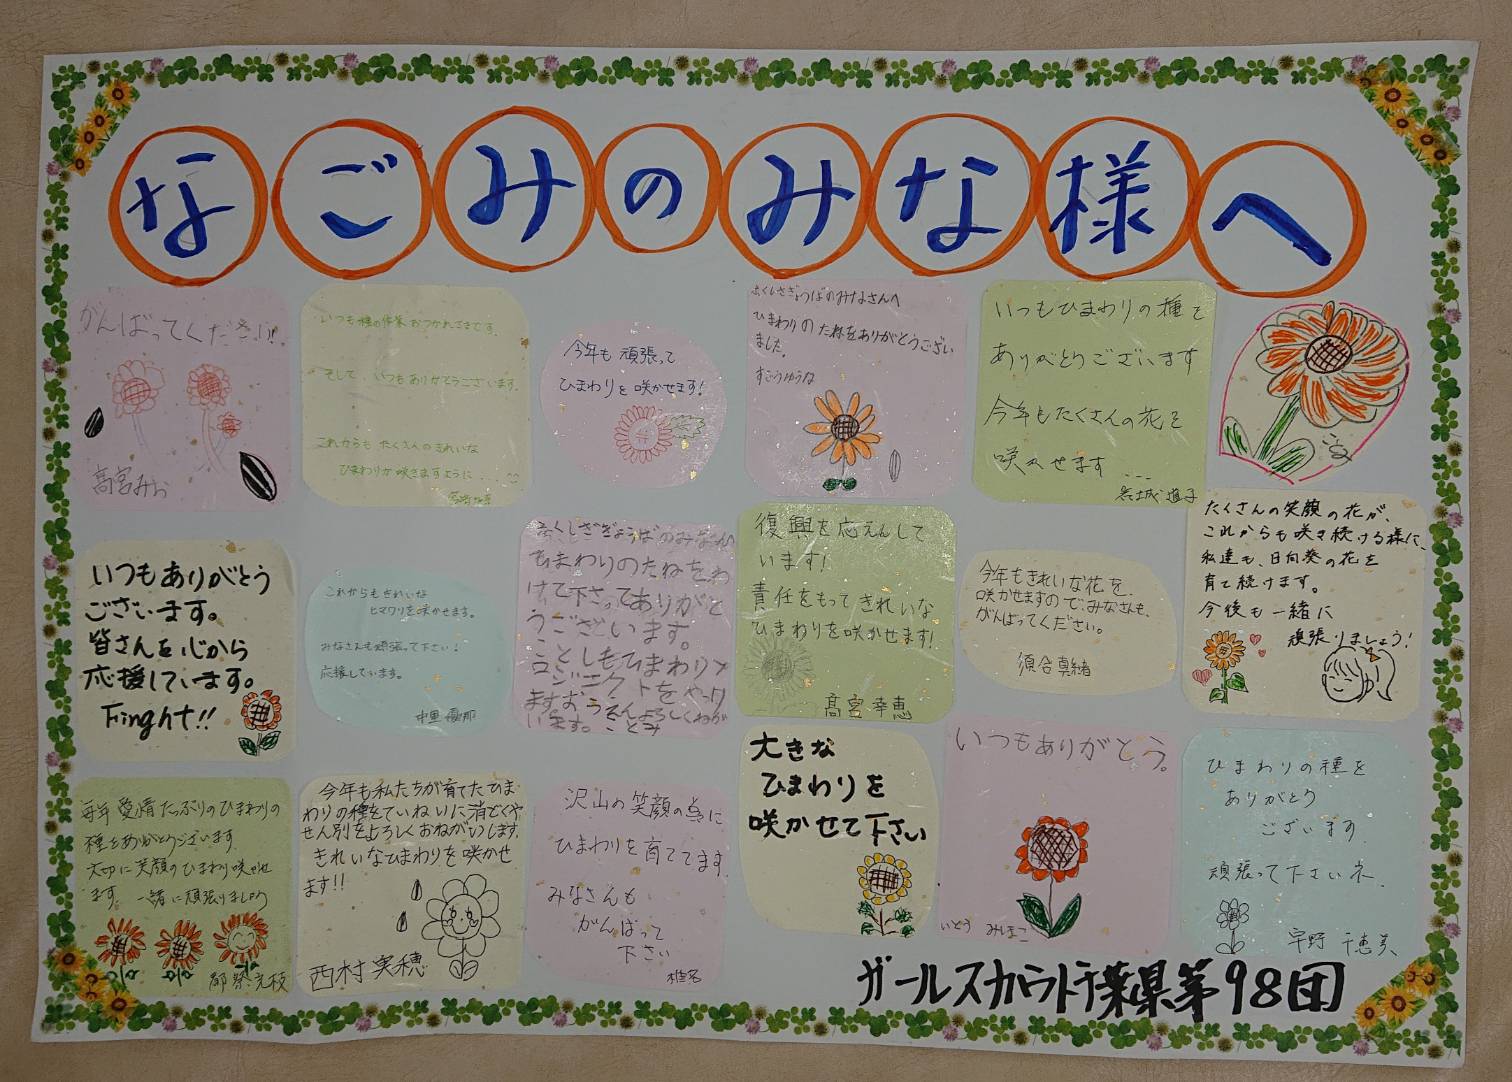 なごみのみな様へ
がんばってください!!
高宮みお
いつも種の作業おつかれさまです。
そして いつもありがとうございます。
これからも たくさんのきれいな
ひまわりが咲きますように……
今年も頑張って
ひまわりを咲かせます!
ふくしさぎょうばのみなさんへ
ひまわりのたねをありがとうござい
ました。
すごうゆうな
いつもひまわりの種を
ありがとうございます
今年もたくさんの花を
咲かせます…
岩城 道子
いつもありがとう
ございます。
皆さんを心から
応援しています。
Finght!!
これからもきれいな
ヒマワリを咲かせます。
みなさんも頑張って下さい!
応援しています。
中里 優那
ふくしさぎょうばのみなさん
ひまわりのたねをわ
けて下さってありがと
うございます。
ことしもひまわりプ
ロジェクトをやり
ますおうえんよろしくねが
います。ことみ
復興を応えんして
います!
責任をもってきれいな
ひまわりを咲かせます!
高宮 幸恵
今年もきれいな花を、
咲かせますので、みなさんも、
がんばってください。
須谷真緒
たくさんの笑顔の花が、
これからも咲き続ける様に、
私達も、日向葵の花を
育て続けます。
今後も一緒に
頑張りましょう!
毎年愛情たっぷりのひまわりの
種をありがとうございます.
大切に笑顔のひまわり咲かせ
ます。一緒に頑張りましょう
今年も私たちが育てたひま
わりの種をていねいに消どくや
せん別をよろしくおねがいします。
きれいなひまわりを咲かせ
ます!!
西村実穂
沢山の笑顔の為に
ひまわりを育ててます.
みなさんも
がんばって
下さい
椎名
大きな
ひまわりを
咲かせて下さい
いつもありがとう。
いとう みほこ
ひまわりの種を
ありがとう
ございます.
頑張って下さいネ.
宇野 千恵美
ガールスカウト千葉県第98団